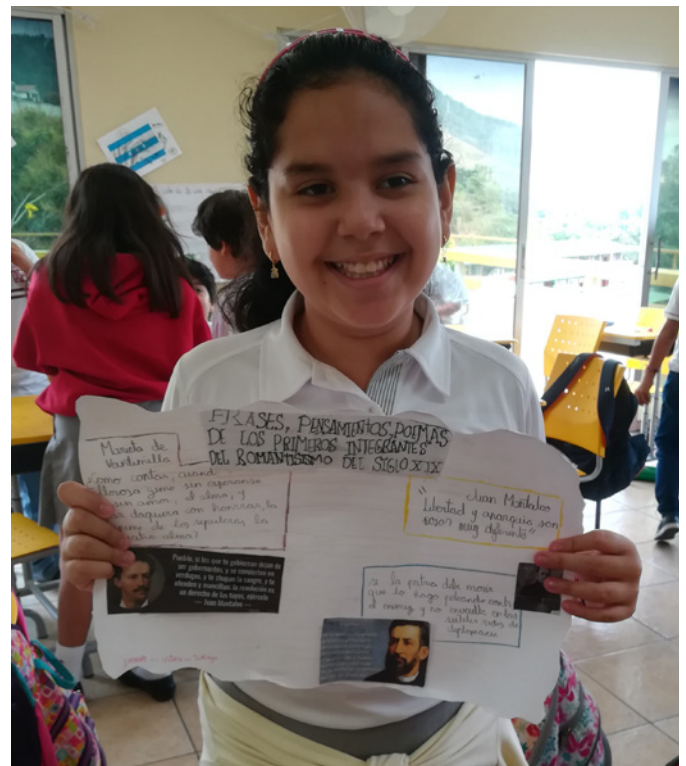 FRASES, PENSAMIENTOS, POEMAS
DE LOS PRIMEROS INTEGRANTES
DEL ROMANTISISMO DEL SIGLO XIX
Marieta de
Veintimilla
¿Como contar, cuand
llorosa gime sin esperanza
sin amor, el alma; y
doquiera con honrarse, la
de los sepulcros, la
alma?
"Juan Montalvo
Libertad y anarquia son
cosas muy diferente"
Pueblo, si los que te gobiernan dejan de
ser gobernantes, y se convierten en
verdugos, y te chupan la sangre, y te
ofenden y mancillan; la revolución es
un derecho de los tuyos, ejércela
— Juan Montalvo —
si la patria debe morir
que lo haga peleando contra
el enemigo y no envuelta entre
sutiles redes de
diplomacia